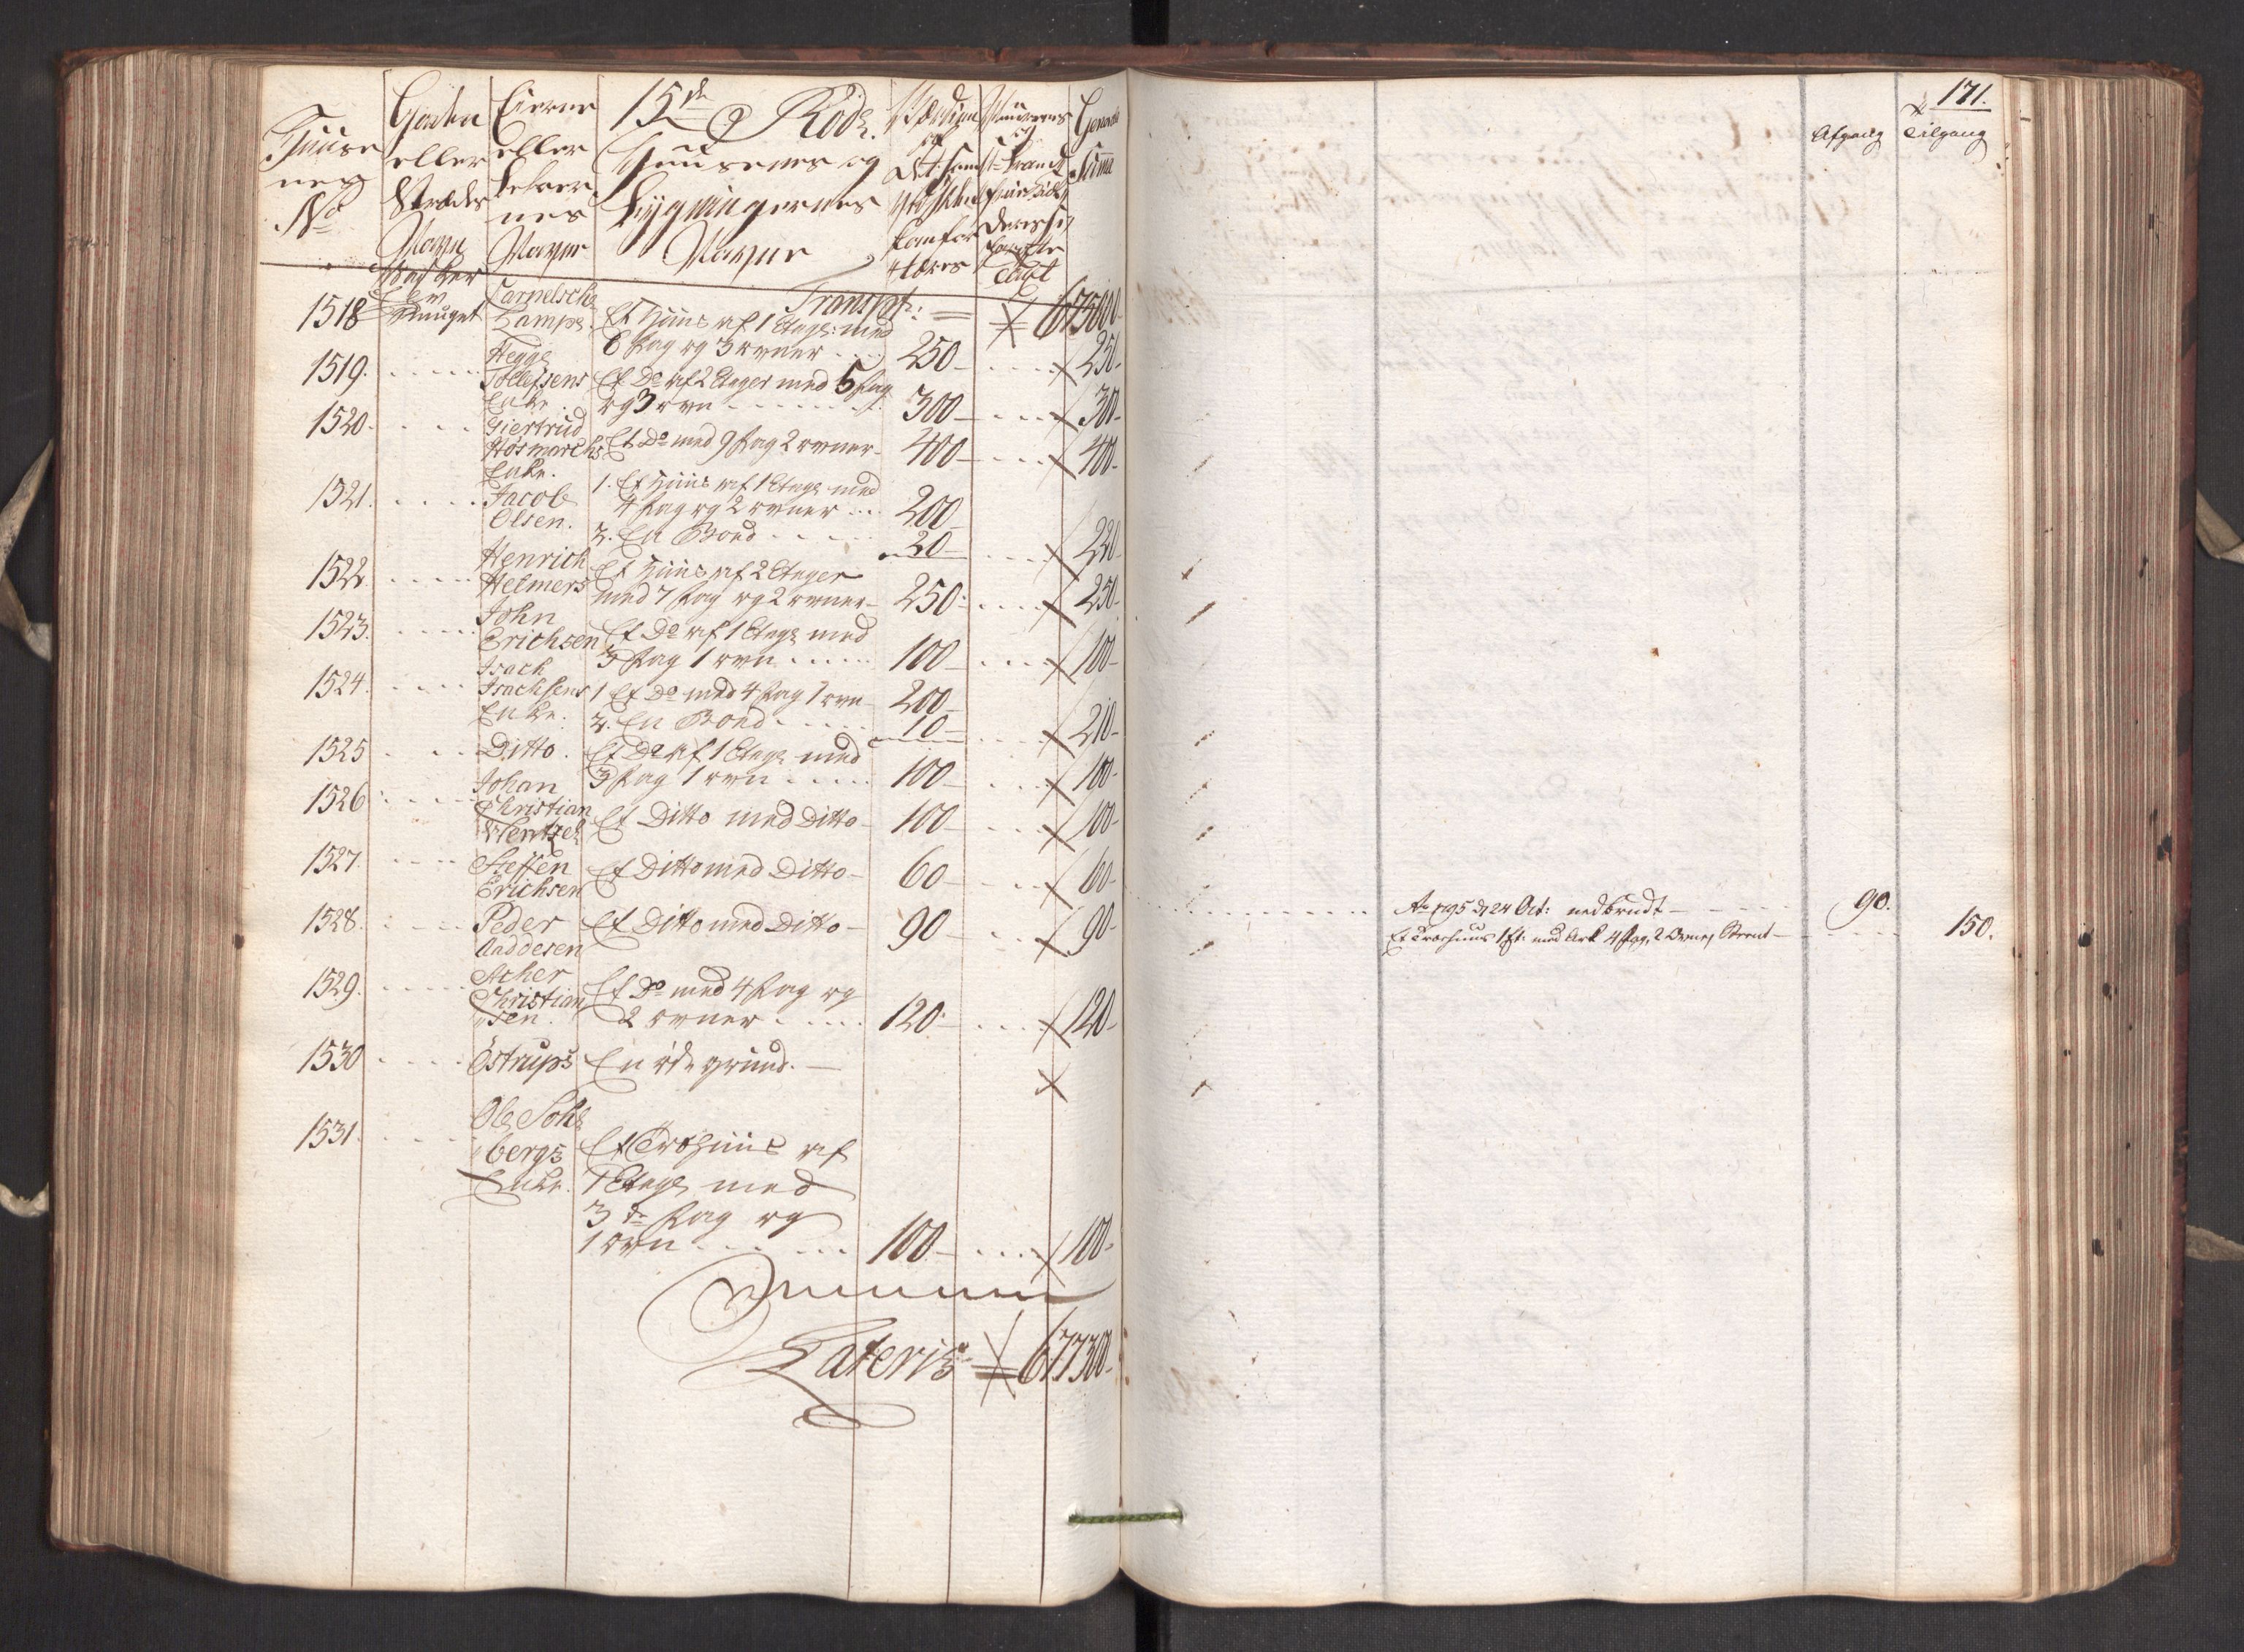 Huuse
nes
No
Gaden
eller
Strædes
Navn
Eierne
eller
beboer
nes
Navne
15de Rode.
Huusenes og
bygningernes
Navne
General
Suma
Transpt: = 675000
1518 Cornelsche Lampe. Et Huus af 1 Etage: med
6 Fag og 3 ovner .... 250 - .... 250-
1519. ..... Hegge
Tollefsens Et Do af 2 Etager med 5 Fag
Enke. og 3 ovn ........ 300 - .... 300-
1520. ..... Giertrud
Et Do med 9 Fag 2 ovner - 400 - .... 400-
Enke.
1521. ..... Jacob 1. Et Huus af 1 Etage med
Olsen. 4 Fag og 2 ovner ... 200
2. En Boed ..... 20 - .... 220
1522. ..... Henrich Et Huus af 2 Etager
Helmers med 7 Fag og 2 ovner - 250 - .... 250-
1523. ..... John
Erichsen Et Do af 1 Etage med
3 Fag 1 ovn ...... 100 - .... 100-
1524. ..... Isach
Isachsens 1 Et Do med 4 Fag 1 ovn - 200
Enke. 2. En Boed ..... 10 - .... 210-
1525 .... Ditto. Et Do af 1 Etage med
3 Fag 1 ovn ..... 100 - .... 100-
1526 .... Johan
Christian
Wentzel Et Ditto med Ditto - 100 - .... 100-
1527. .... Steffen
Erichsen Et Ditto med Ditto - 60 - .... 60-
1528. .... Peder
Et Ditto med Ditto - 90 - .... 90-
1529. .... Acher
Christian Et Do med 4 Fag og
sen. 2 ovner ..... 120 - .... 120-
1530 .... Östrups En øde grund. -
1531. .... Ole Sohl
bergs Et Træhuus af
Enke. 1 Etage med
3 de Fag og
1 ovn ...... 100 - .... 100-
Lateris 677300-
171.
Afgang Tilgang
Ao 1795 d 24 Oct: nedbrudt - 90.
Et Træehuus 1 Et: med Ark 4 Fag, 2 Ovne, - 150.